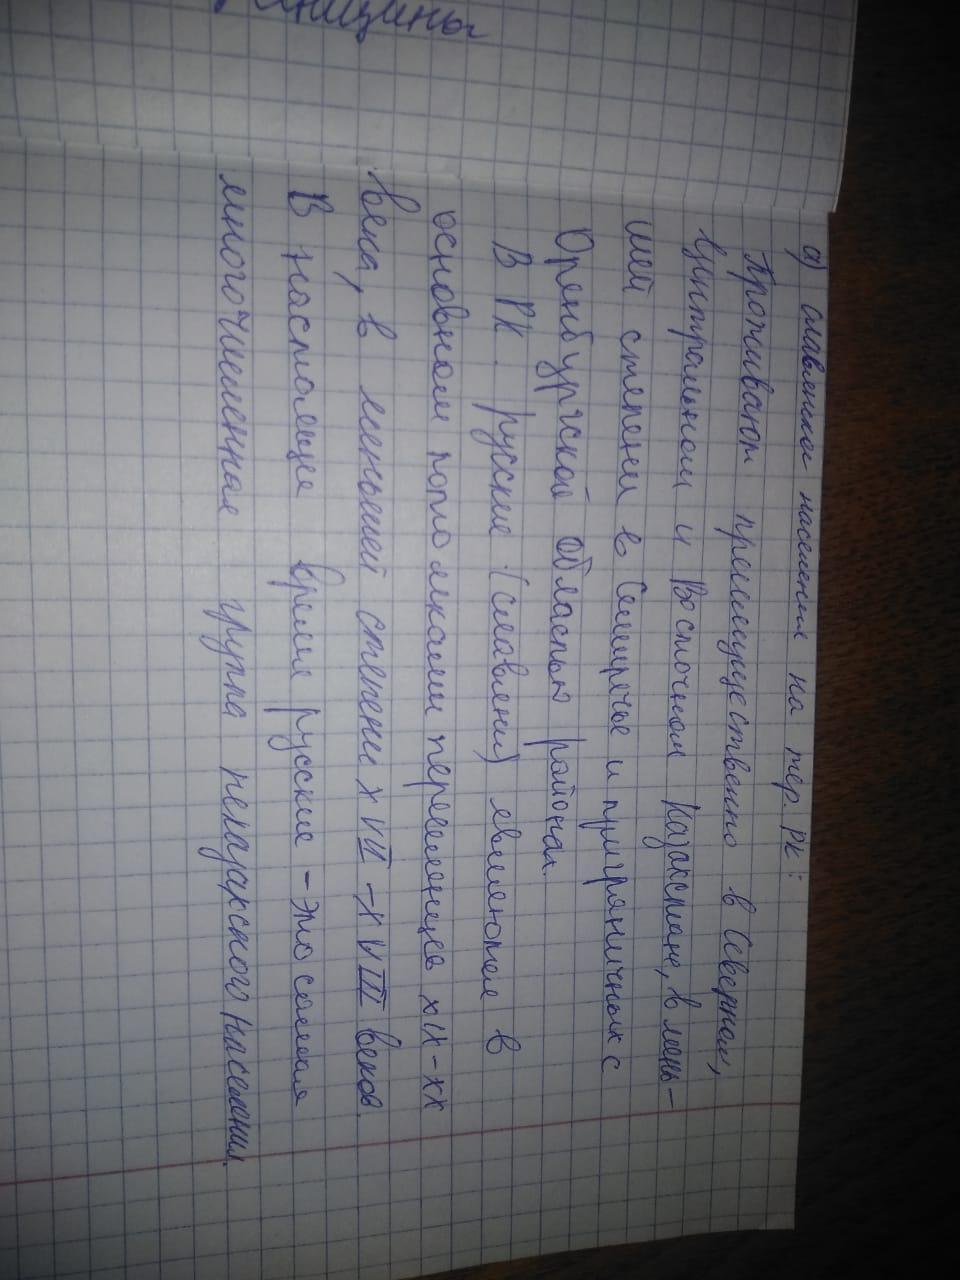 а) славянское население на тер. РК:
Проживают преимущественно в Северном,
Центральном и Восточном Казахстане, в мень-
шей степени в Семиречье и приграничных с
Оренбургской областью районах.
В РК русские (славяне) являются в
основном потомками переселенцев XIX-XX
века, в меньшей степени XVII-XVIII веков.
В настоящее время русские - это самая
многочисленная группа неказахского населения.